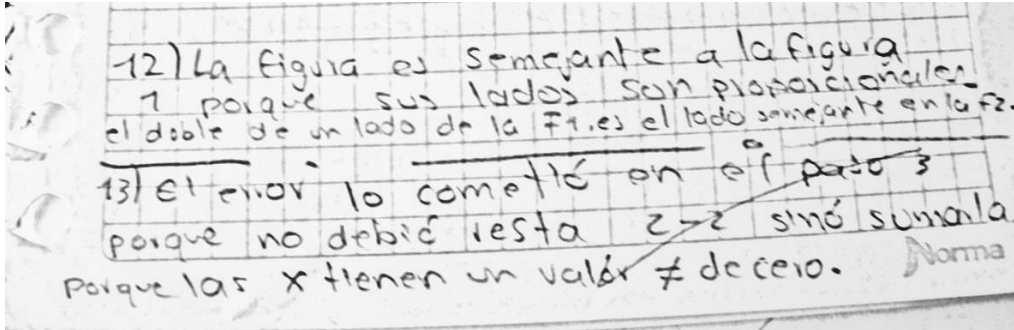 12) La figura es semejante a la figura
1 porque sus lados son proporcionales
el doble de un lado de la F1. es el lado semejante en la F2.
13) El error lo cometió en el paso 3
porque no debió resta 2-2 sinó sumarla
porque las x tienen un valór ≠ de cero.
Norma